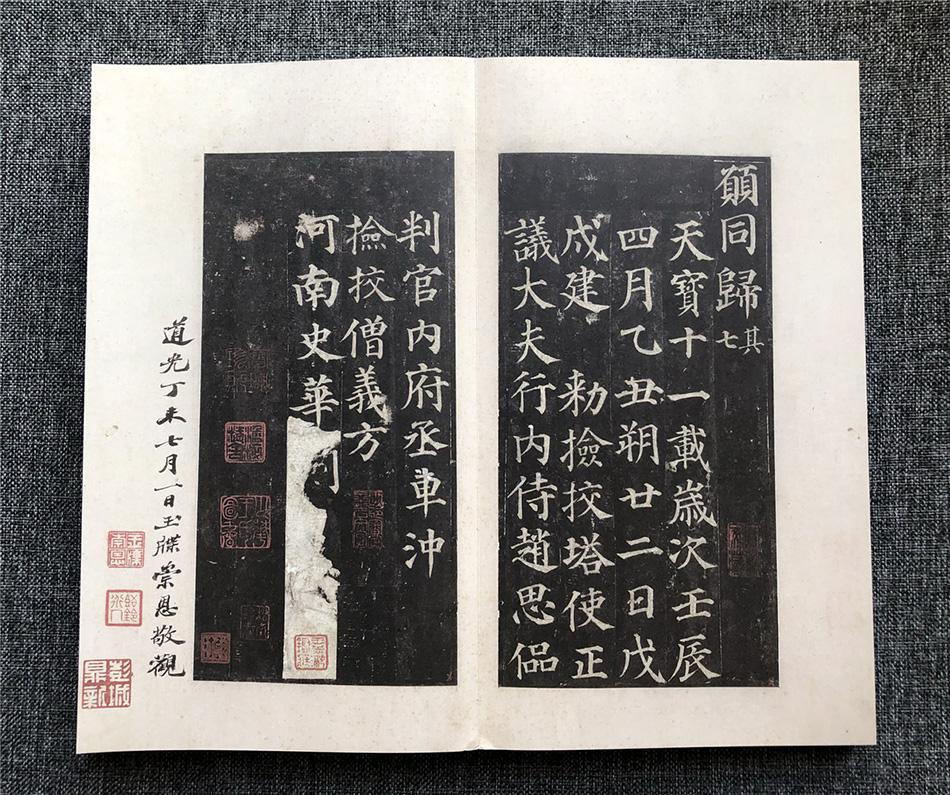 願同歸其七
天寶十一載歲次壬辰
四月乙丑朔廿二日戊
戌建 勑撿挍塔使正
議大夫行內侍趙思侃
判官內府丞車沖
撿挍僧義方
河南史華
道光丁未七月一日玉牒崇恩敬觀
玉牒崇恩
彭城鼎新